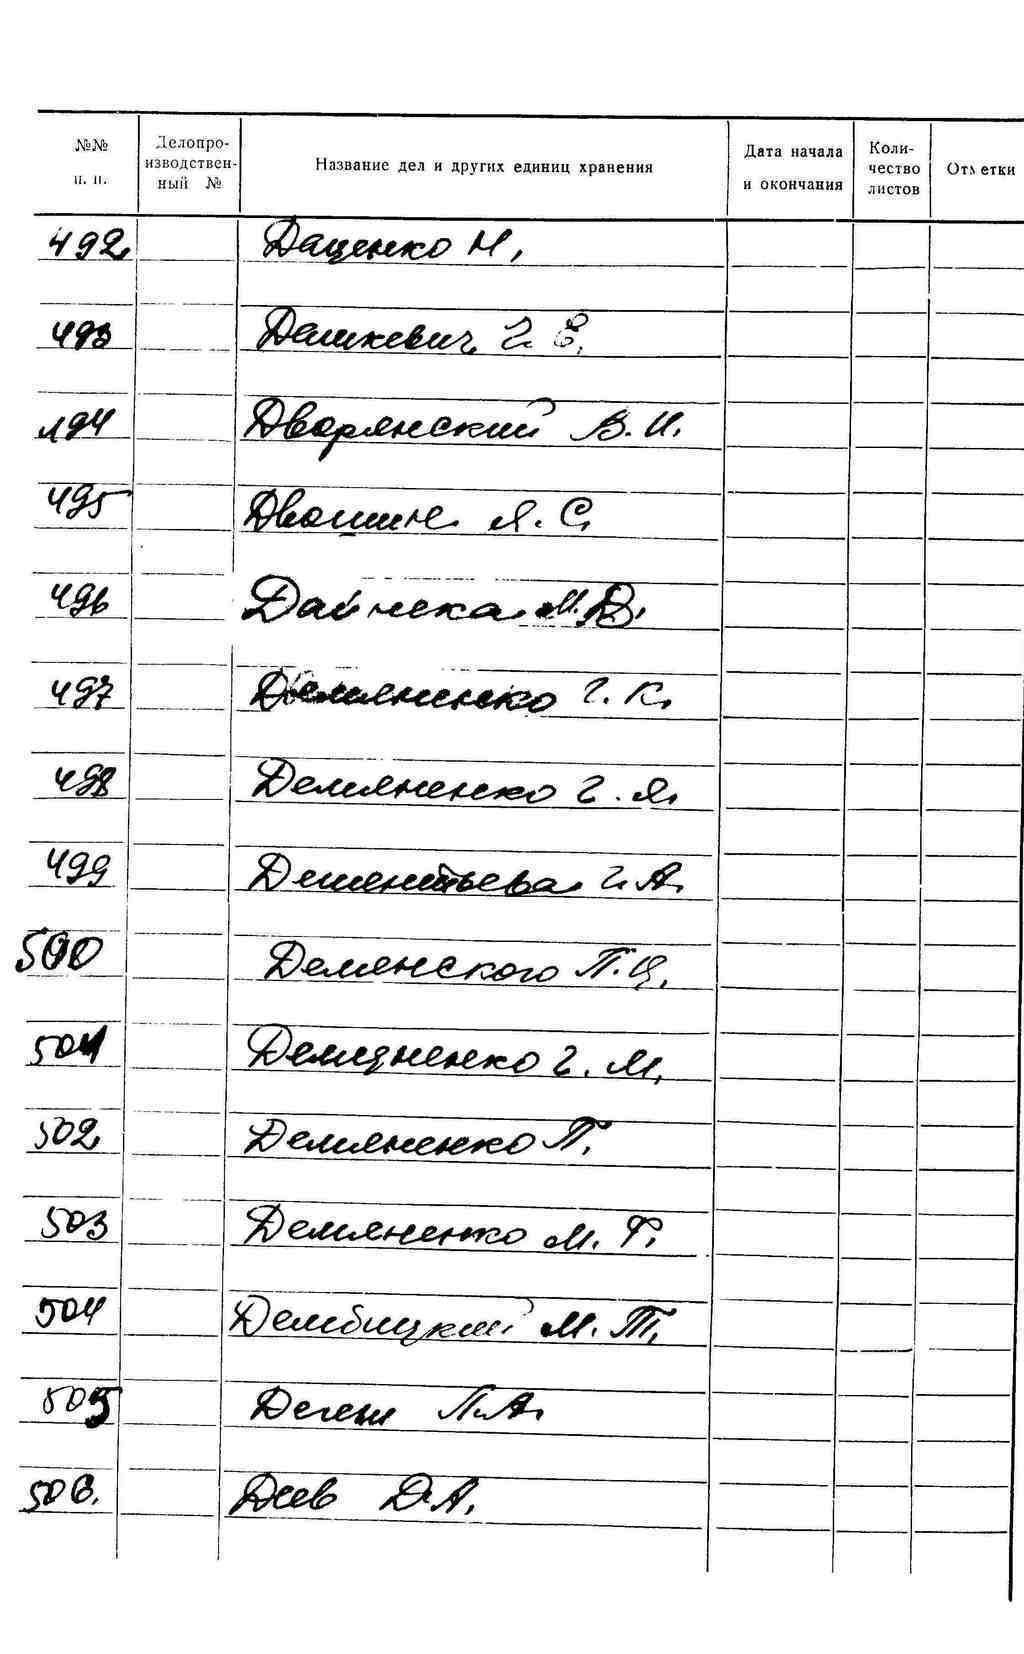 №№ п. п. Делопроизводственный № Название дел и других единиц хранения Дата начала и окончания Количество листов Отметки
492. Даценко Н.
493 Дашкевич Г. Е.
494 Дворянский В. И.
495 Двошин Я. С.
496 Дайнека М. В.
497 Демяненко Г. К.
498 Демяненко Г. Я.
499 Дементьева Г. А.
500 Деменского П. Ц.
501 Демяненко Г. М.
502. Демяненко П.
503 Демяненко М. Ф.
504 Дембицкий М. Т.
505 Деген Л. А.
506. Деев Д. А.